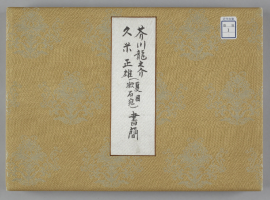 芥川龍之介
久米正雄(夏目漱石宛)書簡